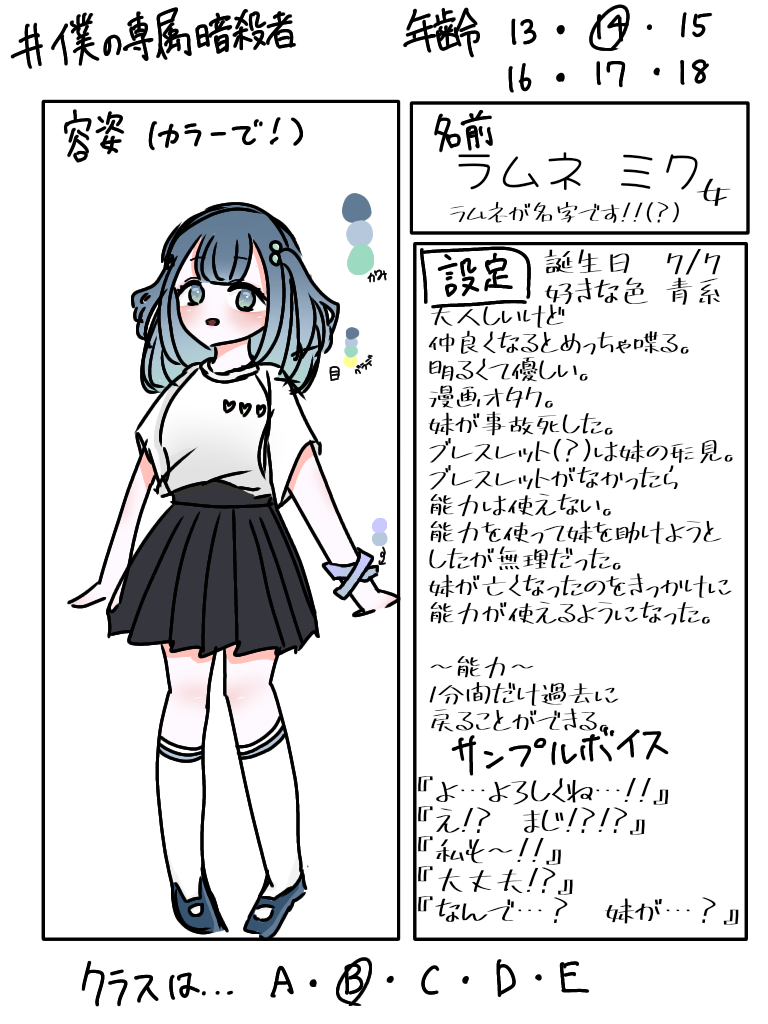 #僕の専属暗殺者
年齢 13・14・15
16・17・18
容姿 (カラーで!)
かみ
目
名前
ラムネ ミク 女
ラムネが名字です!!(?)
設定
誕生日 7/7
好きな色 青系
大人しいけど
仲良くなるとめっちゃ喋る。
明るくて優しい。
漫画オタク。
妹が事故死した。
ブレスレット(?)は妹の形見。
ブレスレットがなかったら
能力は使えない。
能力を使って妹を助けようと
したが無理だった。
妹が亡くなったのをきっかけに
能力が使えるようになった。
～能力～
1分間だけ過去に
戻ることができる。
サンプルボイス
『よ…よろしくね…!!』
『え!? まじ!?!?』
『私も～!!』
『大丈夫!?』
『なんで…? 妹が…?』
クラスは… A・B・C・D・E